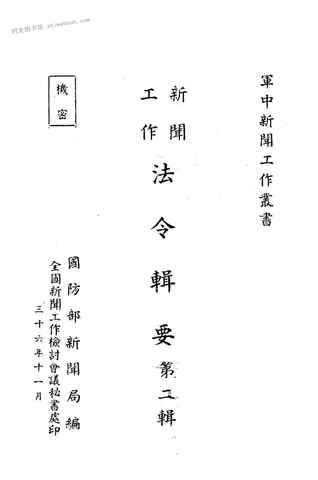 軍中新聞工作叢書
新聞
工作
法令輯要
第二輯
機密
國防部新聞局編
全國新聞工作檢討會議秘書處印
三十六年十一月